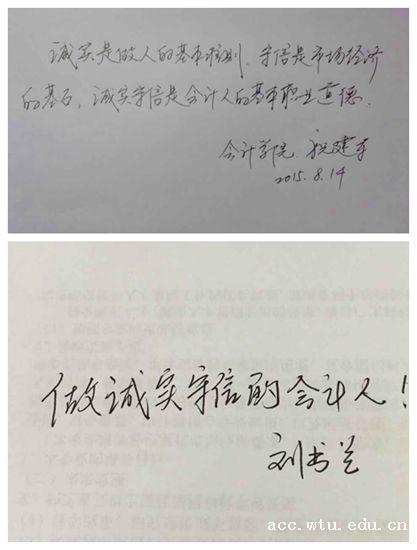 诚实是做人的基本准则,守信是市场经济
的基石,诚实守信是会计人的基本职业道德.
会计学院
2015.8.14
做诚实守信的会计人!
刘书兰
acc.wtu.edu.cn